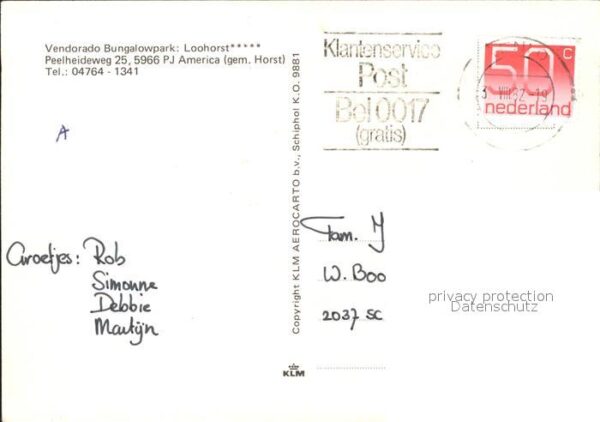 Vendorado Bungalowpark: Loohorst*****
Peelheideweg 25, 5966 PJ America (gem. Horst)
Tel.: 04764 - 1341
A
Klantenservice
Post
Bel 0017
(gratis)
50 C
nederland
Copyright KLM AEROCARTO b.v., Schiphol K.O. 9881
Groetjes: Rob
Simonne
Debbie
Martijn
Fam. J
W. Boo
2037 SC
privacy protection
Datenschutz
KLM